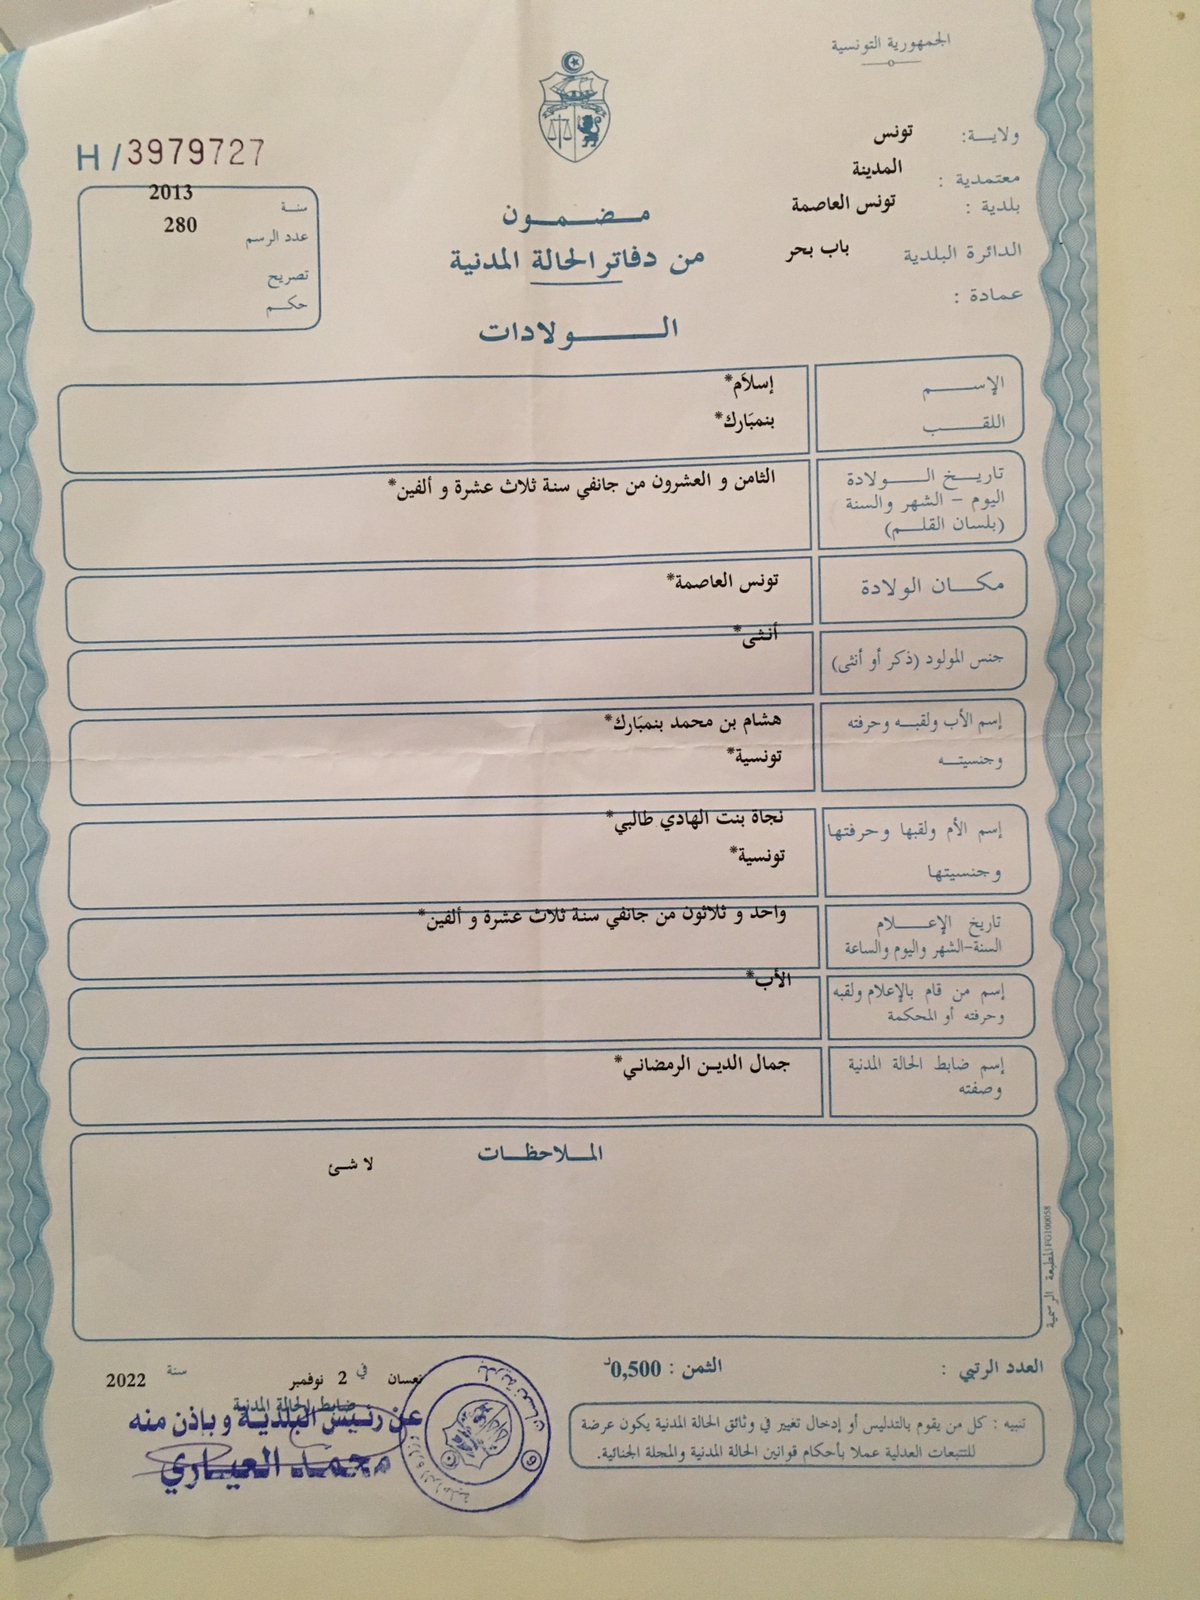 الجمهورية التونسية
ولاية: تونس
معتمدية : المدينة
بلدية : تونس العاصمة
الدائرة البلدية باب بحر
عمادة :
H/3979727
سنة 2013
عدد الرسم 280
تصريح
حكم
مضمون
من دفاتر الحالة المدنية
الولادات
الإسم إسلاَم*
اللقب بنمبَارك*
تاريخ الولادة
اليوم - الشهر والسنة
(بلسان القلم)
الثامن و العشرون من جانفي سنة ثلاث عشرة و ألفين*
مكان الولادة تونس العاصمة*
جنس المولود (ذكر أو أنثى) أنثى*
إسم الأب ولقبه وحرفته
وجنسيته
هشام بن محمد بنمبَارك*
تونسية*
إسم الأم ولقبها وحرفتها
وجنسيتها
نجاة بنت الهادي طالبي*
تونسية*
تاريخ الإعلام
السنة-الشهر واليوم والساعة
واحد و ثلاثون من جانفي سنة ثلاث عشرة و ألفين*
إسم من قام بالإعلام ولقبه
وحرفته أو المحكمة
الأب*
إسم ضابط الحالة المدنية
وصفته
جمال الدين الرمضاني*
الملاحظات
لا شئ
المطبعة الرسمية PG100058
العدد الرتبي :
الثمن : 0,500د
تنبيه : كل من يقوم بالتدليس أو إدخال تغيير في وثائق الحالة المدنية يكون عرضة
للتتبعات العدلية عملا بأحكام قوانين الحالة المدنية والمجلة الجنائية.
نعسان في 2 نوفمبر سنة 2022
ضابط الحالة المدنية
عن رئيس البلدية و باذن منه
محمد العياري
بلدية نعسان